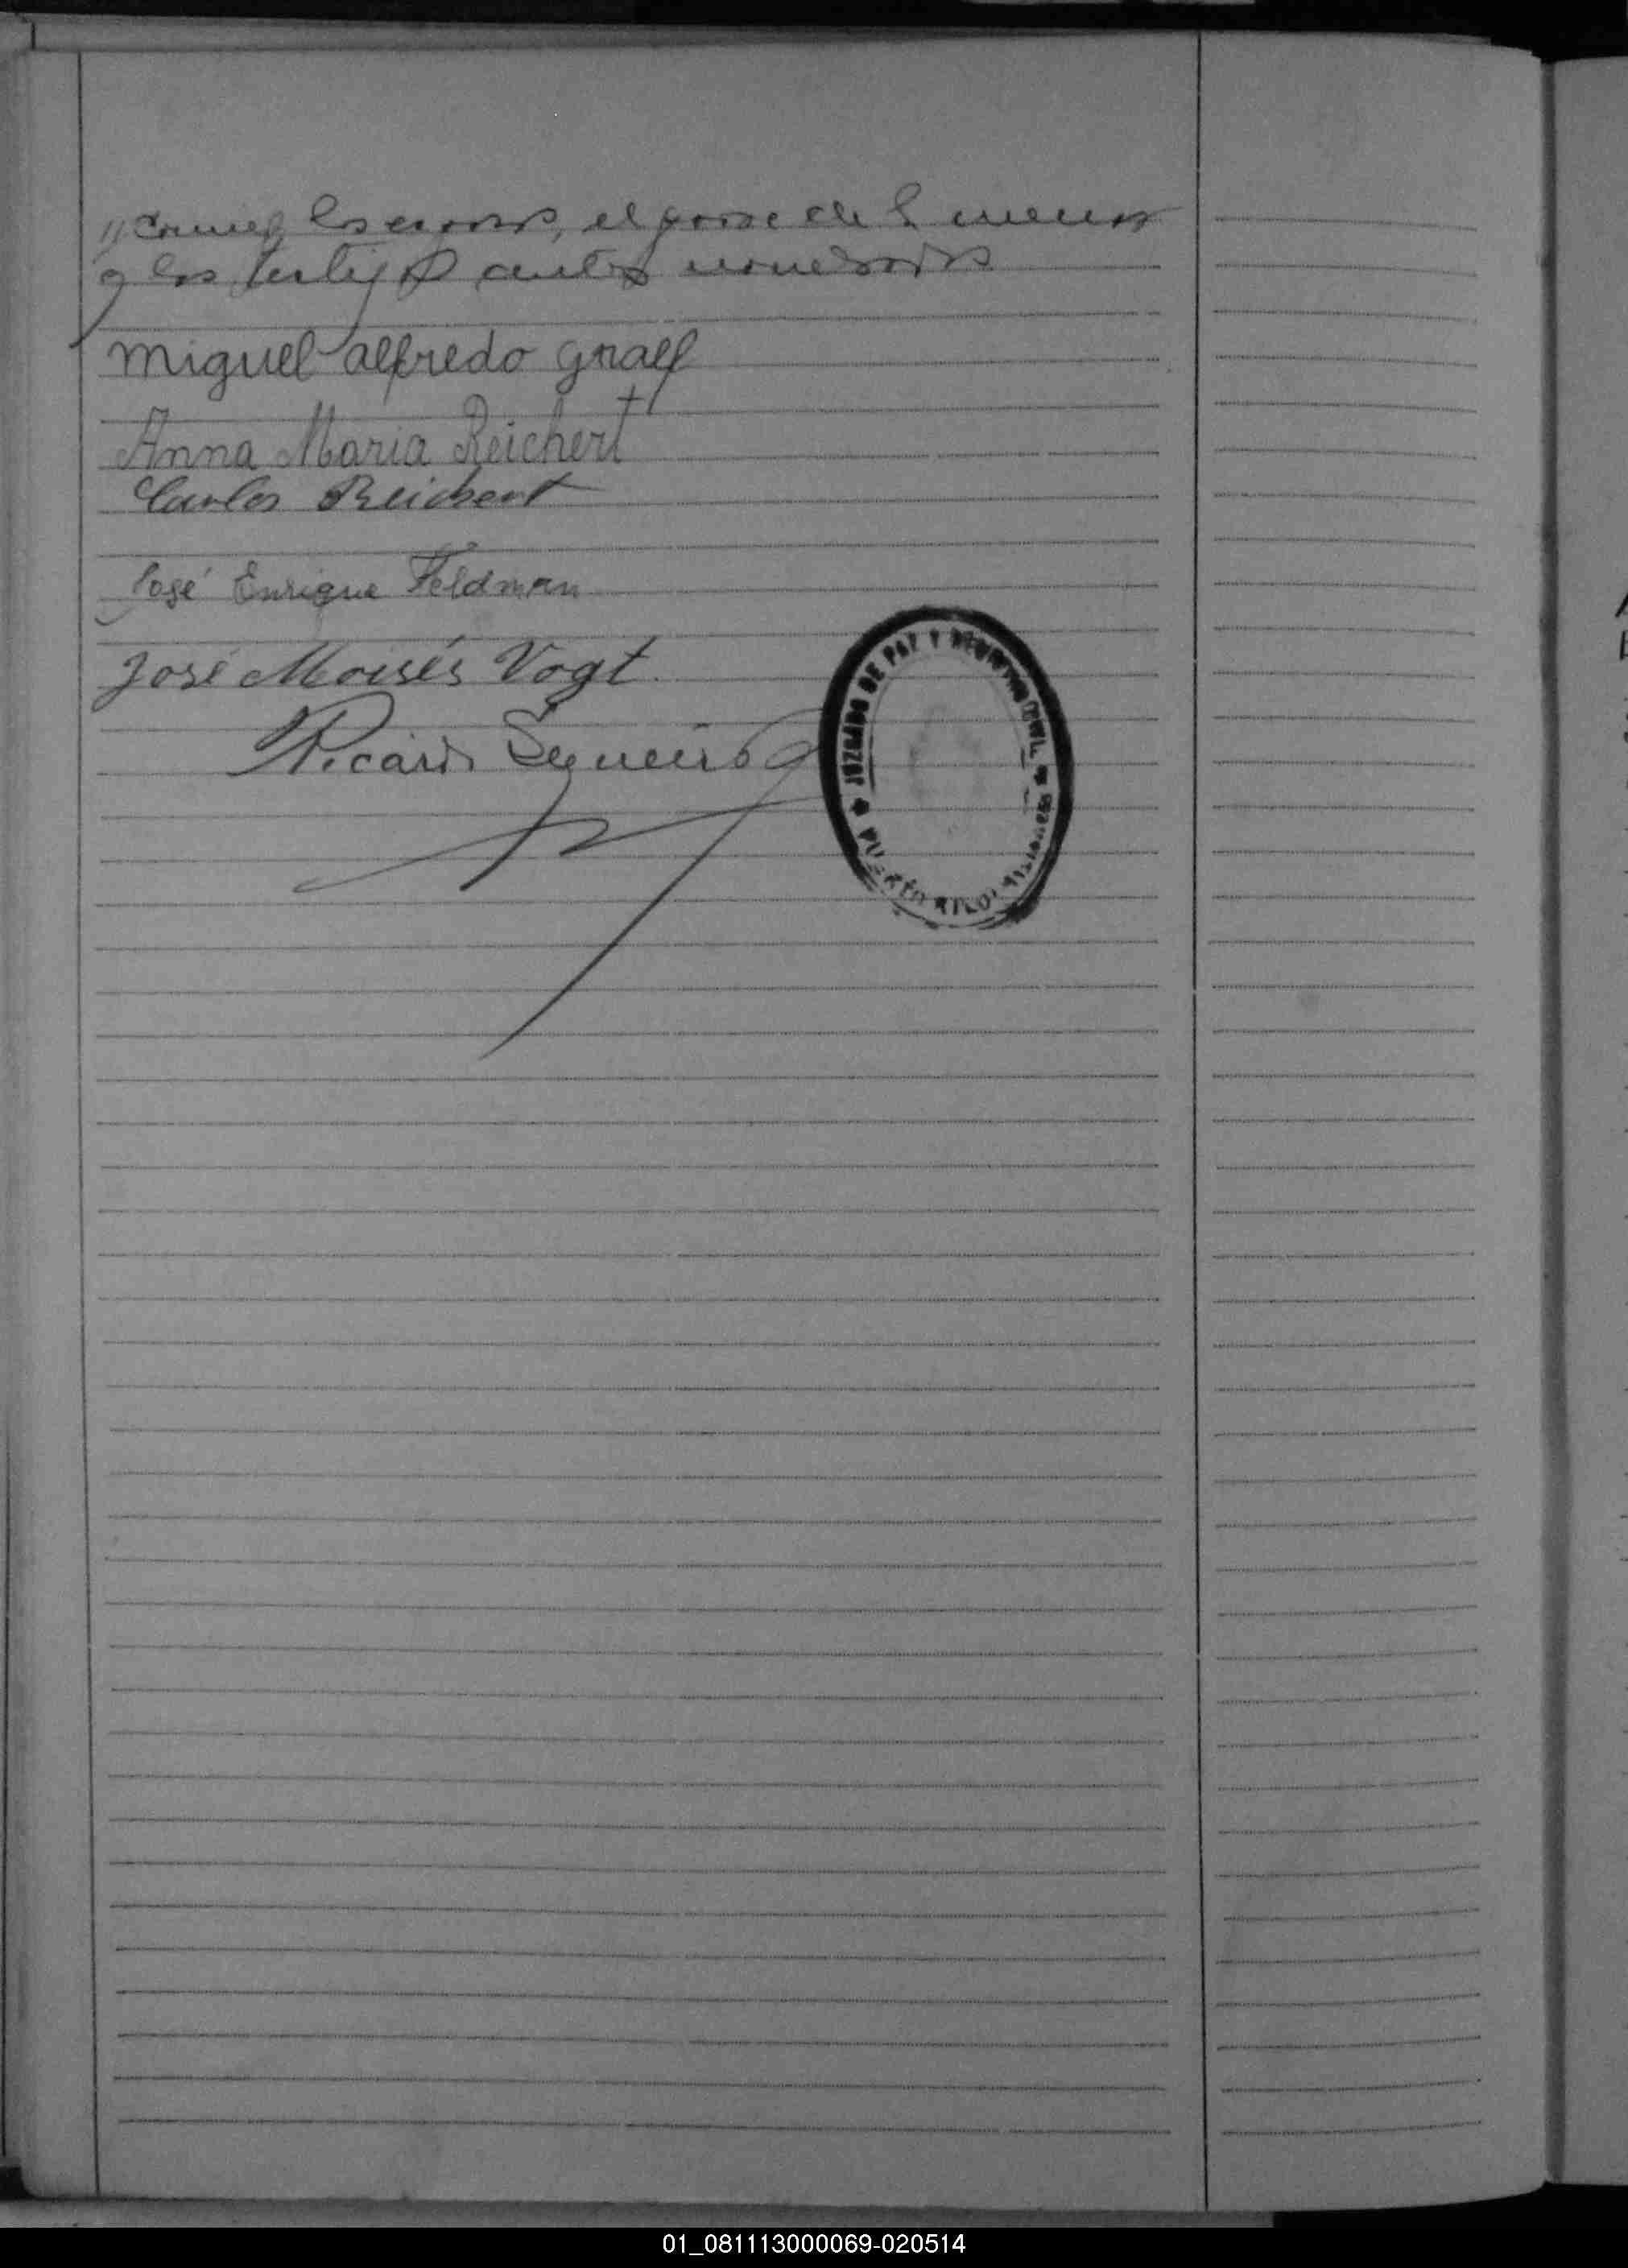 // conmigo los esposos, el padre de la menor
y los testigos antes nombrados
Miguel Alfredo Graef
Anna Maria Reichert
Carlos Reichert
José Enrique Feldman
José Moisés Vogt.
Ricardo Sequeira
JUZGADO DE PAZ Y REGISTRO CIVIL
PUERTO RICO MISIONES
01_081113000069-020514